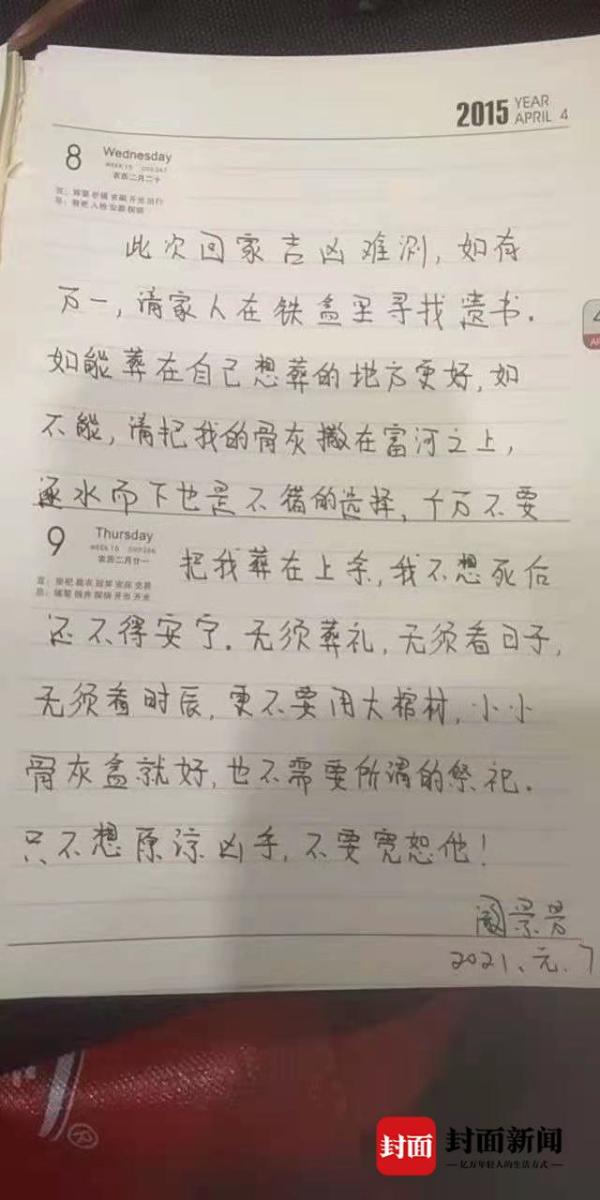 2015 YEAR
APRIL 4
8 Wednesday
农历二月二十
此次回家吉凶难测，如有
万一，请家人在铁盒里寻找遗书.
如能葬在自己想葬的地方更好，如
不能，请把我的骨灰撒在富河之上，
逐水而下也是不错的选择，千万不要
9 Thursday
农历二月廿一
把我葬在上余，我不想死后
还不得安宁. 无须葬礼，无须看日子，
无须看时辰，更不要用大棺材，小小
骨灰盒就好，也不需要所谓的祭祀.
只不想原谅凶手，不要宽恕他！
2021、元、7
封面
封面新闻
亿万年轻人的生活方式